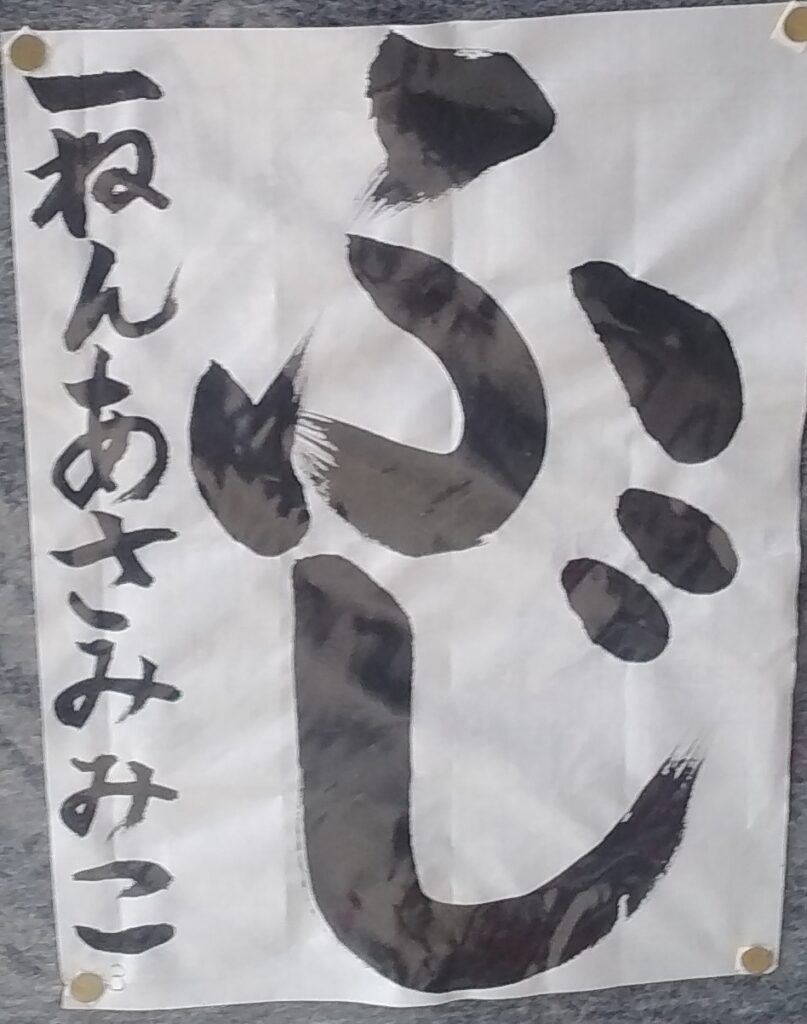 ふじ
一ねんあさみみこ